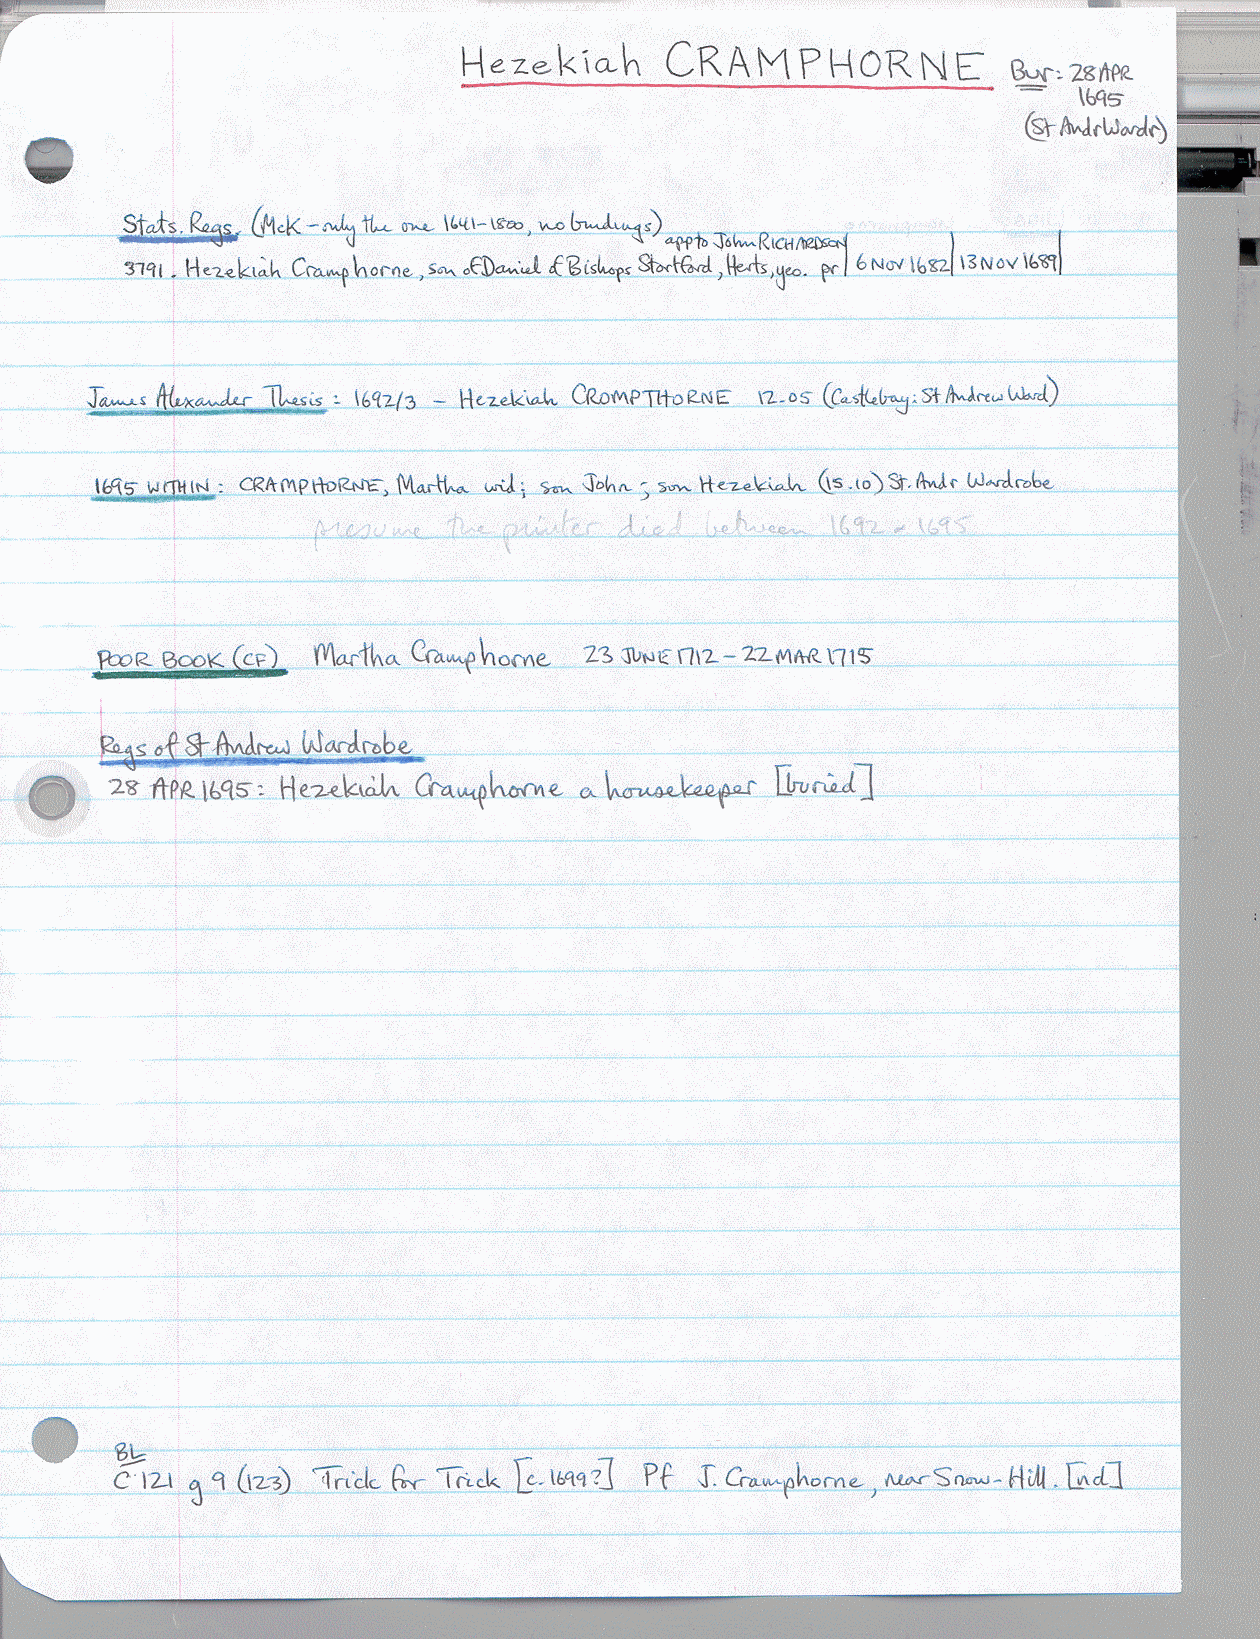 Hezekiah CRAMPHORNE Bur: 28 APR
1695
(St Andr Wardr)
Stats. Regs. (McK - only the one 1641-1800, no bindings)
app to John RICHARDSON
3791. Hezekiah Cramphorne, son of Daniel of Bishops Stortford, Herts, yeo. pr | 6 NOV 1682 | 13 NOV 1689 |
James Alexander Thesis: 1692/3 - Hezekiah CROMPTHORNE 12-05 (Castlebay: St Andrew Ward)
1695 WITHIN: CRAMPHORNE, Martha wid; son John; son Hezekiah (15.10) St. Andr Wardrobe
presume the printer died between 1692 & 1695
POOR BOOK (CF) Martha Cramphorne 23 JUNE 1712 - 22 MAR 1715
Regs of St Andrew Wardrobe
28 APR 1695: Hezekiah Cramphorne a housekeeper [buried]
BL
C 121 g 9 (123) Trick for Trick [c. 1699?] Pf J. Cramphorne, near Snow-Hill. [nd]